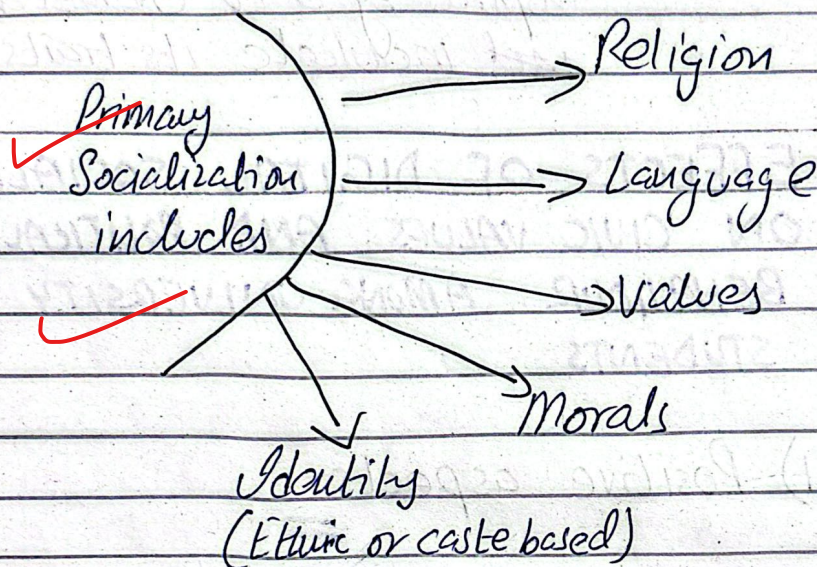 Primary
Socialization
includes
Religion
Language
Values
Morals
Identity
(Ethnic or caste based)